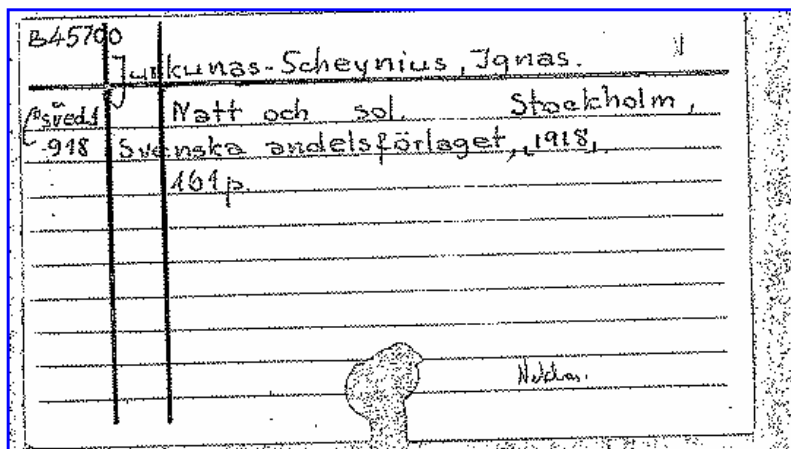 B45700
Jurkunas-Scheynius, Ignas.
Natt och sol. Stockholm,
918 Svenska andelsförlaget, 1918,
161 p.